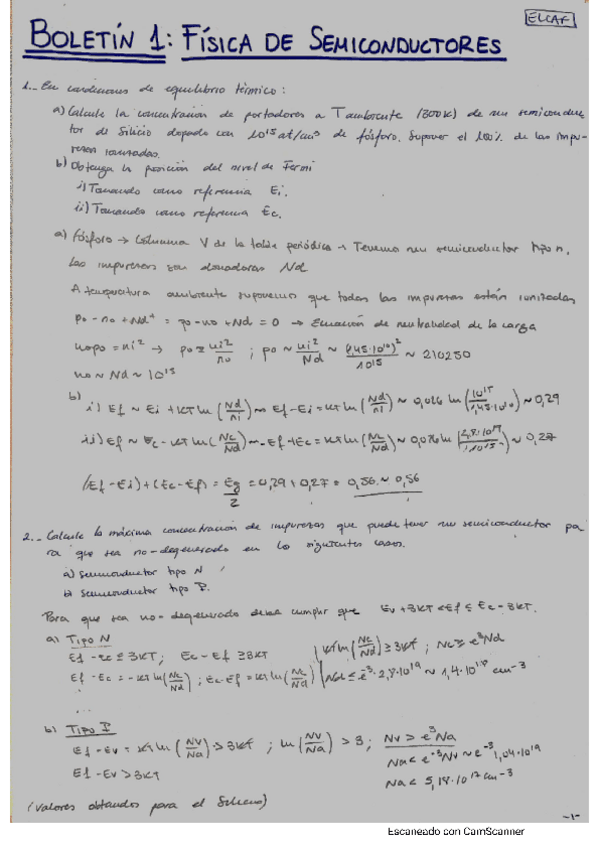 ELCAF
BOLETÍN 1: FÍSICA DE SEMICONDUCTORES
1.- En condiciones de equilibrio térmico:
a) Calcule la concentración de portadores a Tambiente (300K) de un semiconduc-
tor de Silicio dopado con 10^15 at/cm³ de fósforo. Suponer el 100% de las impu-
rezas ionizadas.
b) Obtenga la posición del nivel de Fermi
i) Tomando como referencia Ei.
ii) Tomando como referencia Ec.
a) Fósforo → Columna V de la tabla periódica → Tenemos un semiconductor tipo n.
Las impurezas son donadoras Nd
A temperatura ambiente suponemos que todas las impurezas están ionizadas
po - no + Nd⁺ = po - no + Nd = 0 → Ecuación de neutralidad de la carga
nopo = ni² → po = ni²/no ; po ~ ni²/Nd ~ (1,45·10^10)²/10^15 ~ 210250
no ~ Nd ~ 10^15
b)
i) Ef ~ Ei + KT ln(Nd/ni) → Ef - Ei = KT ln(Nd/ni) ~ 0,026 ln(10^15/1,45·10^10) ~ 0,29
ii) Ef ~ Ec - KT ln(Nc/Nd) → -Ef + Ec = KT ln(Nc/Nd) ~ 0,026 ln(2,8·10^19/10^15) ~ 0,27
(Ef - Ei) + (Ec - Ef) = Eg/2 = 0,29 + 0,27 = 0,56 ~ 0,56
2.- Calcule la máxima concentración de impurezas que puede tener un semiconductor pa
ra que sea no-degenerado en los siguientes casos.
a) Semiconductor tipo N
b) Semiconductor tipo P.
Para que sea no-degenerado debe cumplir que Ev + 3KT < Ef ≤ Ec - 3KT.
a) TIPO N
Ef - Ec ≤ 3KT; Ec - Ef ≥ 3KT | KT ln(Nc/Nd) ≥ 3KT ; Nc ≥ e³Nd
Ef - Ec = -KT ln(Nc/Nd) ; Ec - Ef = KT ln(Nc/Nd) | Nd ≤ e⁻³·2,8·10^19 ~ 1,4·10^18 cm⁻³
b) TIPO P
Ef - Ev = KT ln(Nv/Na) > 3KT ; ln(Nv/Na) > 3 ; Nv > e³Na
Na < e⁻³Nv ~ e⁻³ 1,04·10^19
Ef - Ev > 3KT
Na < 5,18·10^17 cm⁻³
(Valores obtenidos para el Silicio)
-1-
Escaneado con CamScanner